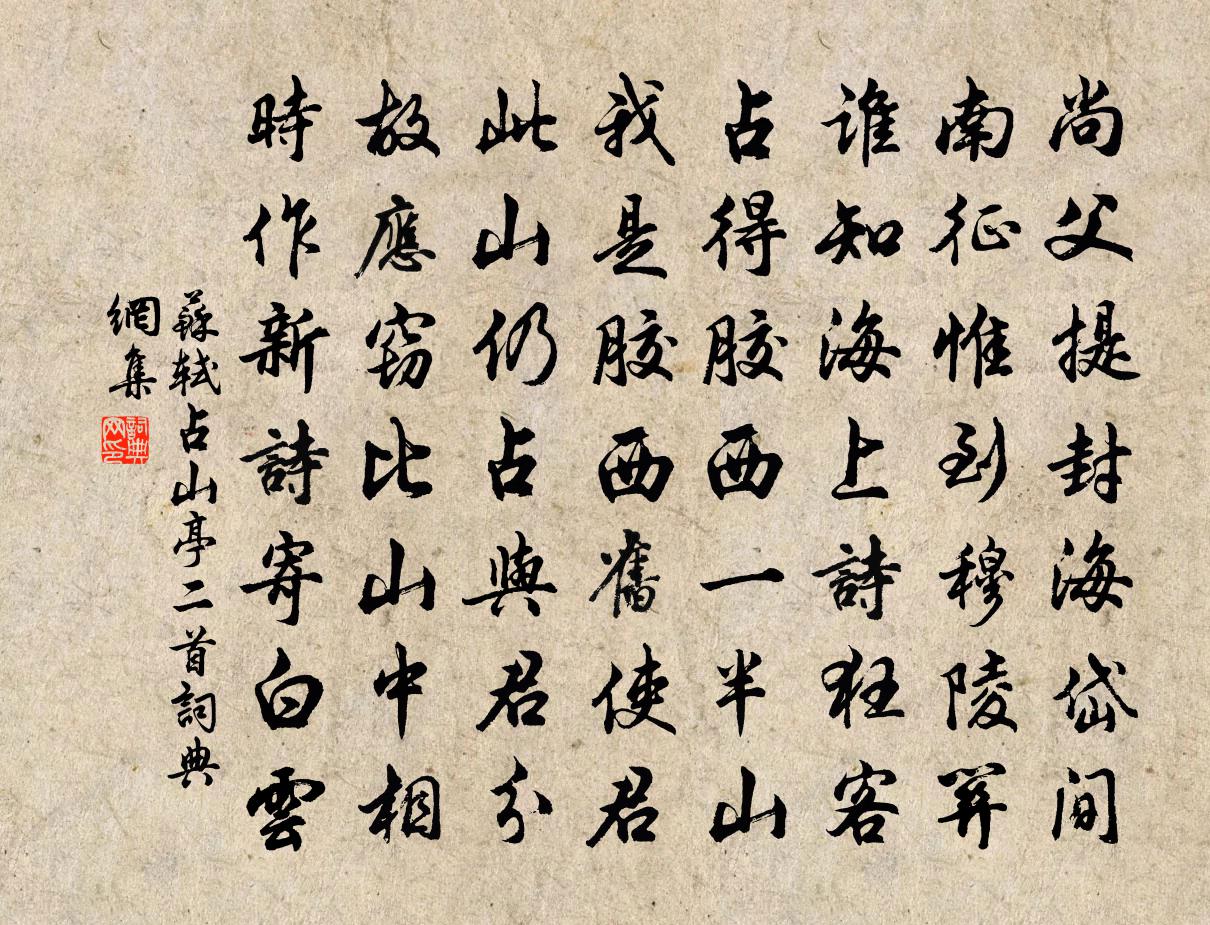 尚父提封海岱間
南征惟到穆陵關
誰知海上詩狂客
占得膠西一半山
我是膠西舊使君
此山仍占與君分
故應竊比山中相
時作新詩寄白雲
蘇軾占山亭二首詞典
網集
詞典網印